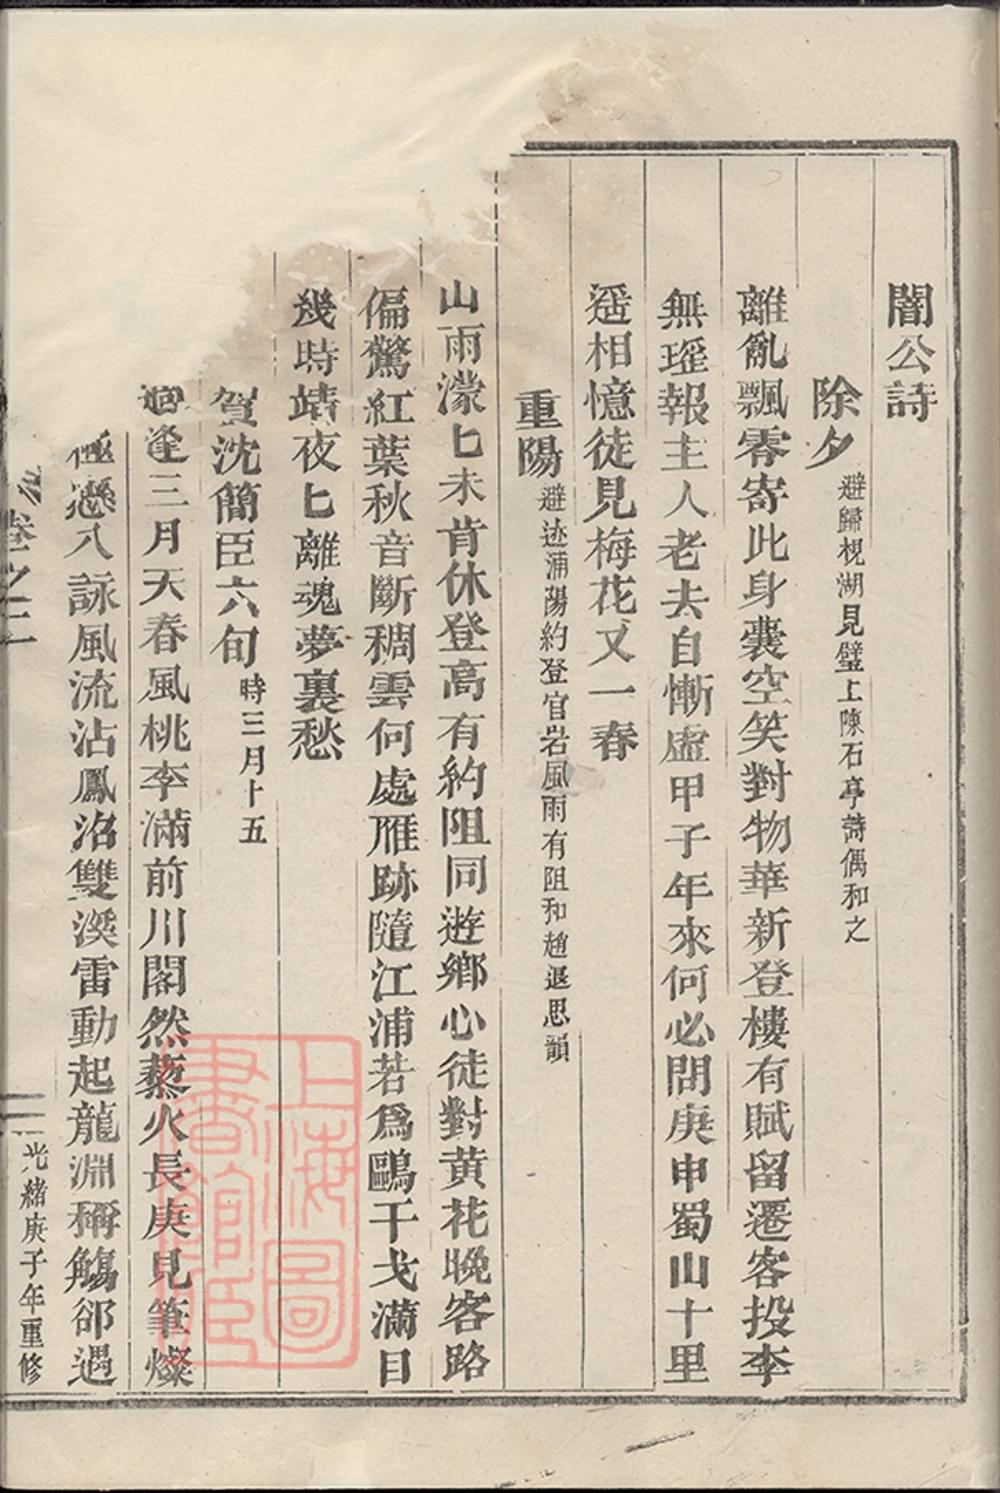 闇公詩
除夕避歸梘湖見壁上陳石亭詩偶和之
離亂飄零寄此身囊空笑對物華新登樓有賦留遷客投李
無瑶報主人老去自慚虛甲子年來何必問庚申蜀山十里
遥相憶徒見梅花又一春
重陽避迹浦陽約登官岩風雨有阻和趙退思韻
山雨濛匕未肯休登高有約阻同遊鄉心徒對黄花晚客路
偏驚紅葉秋音斷稠雲何處雁跡隨江浦若爲鷗干戈滿目
幾時靖夜匕離魂夢裏愁
賀沈簡臣六旬時三月十五
逢三月天春風桃李滿前川閣然藜火長庚見筆燦
八詠風流沾鳳沼雙溪雷動起龍淵稱觴郤遇
卷之二
光緒庚子年重修
上海圖書館藏